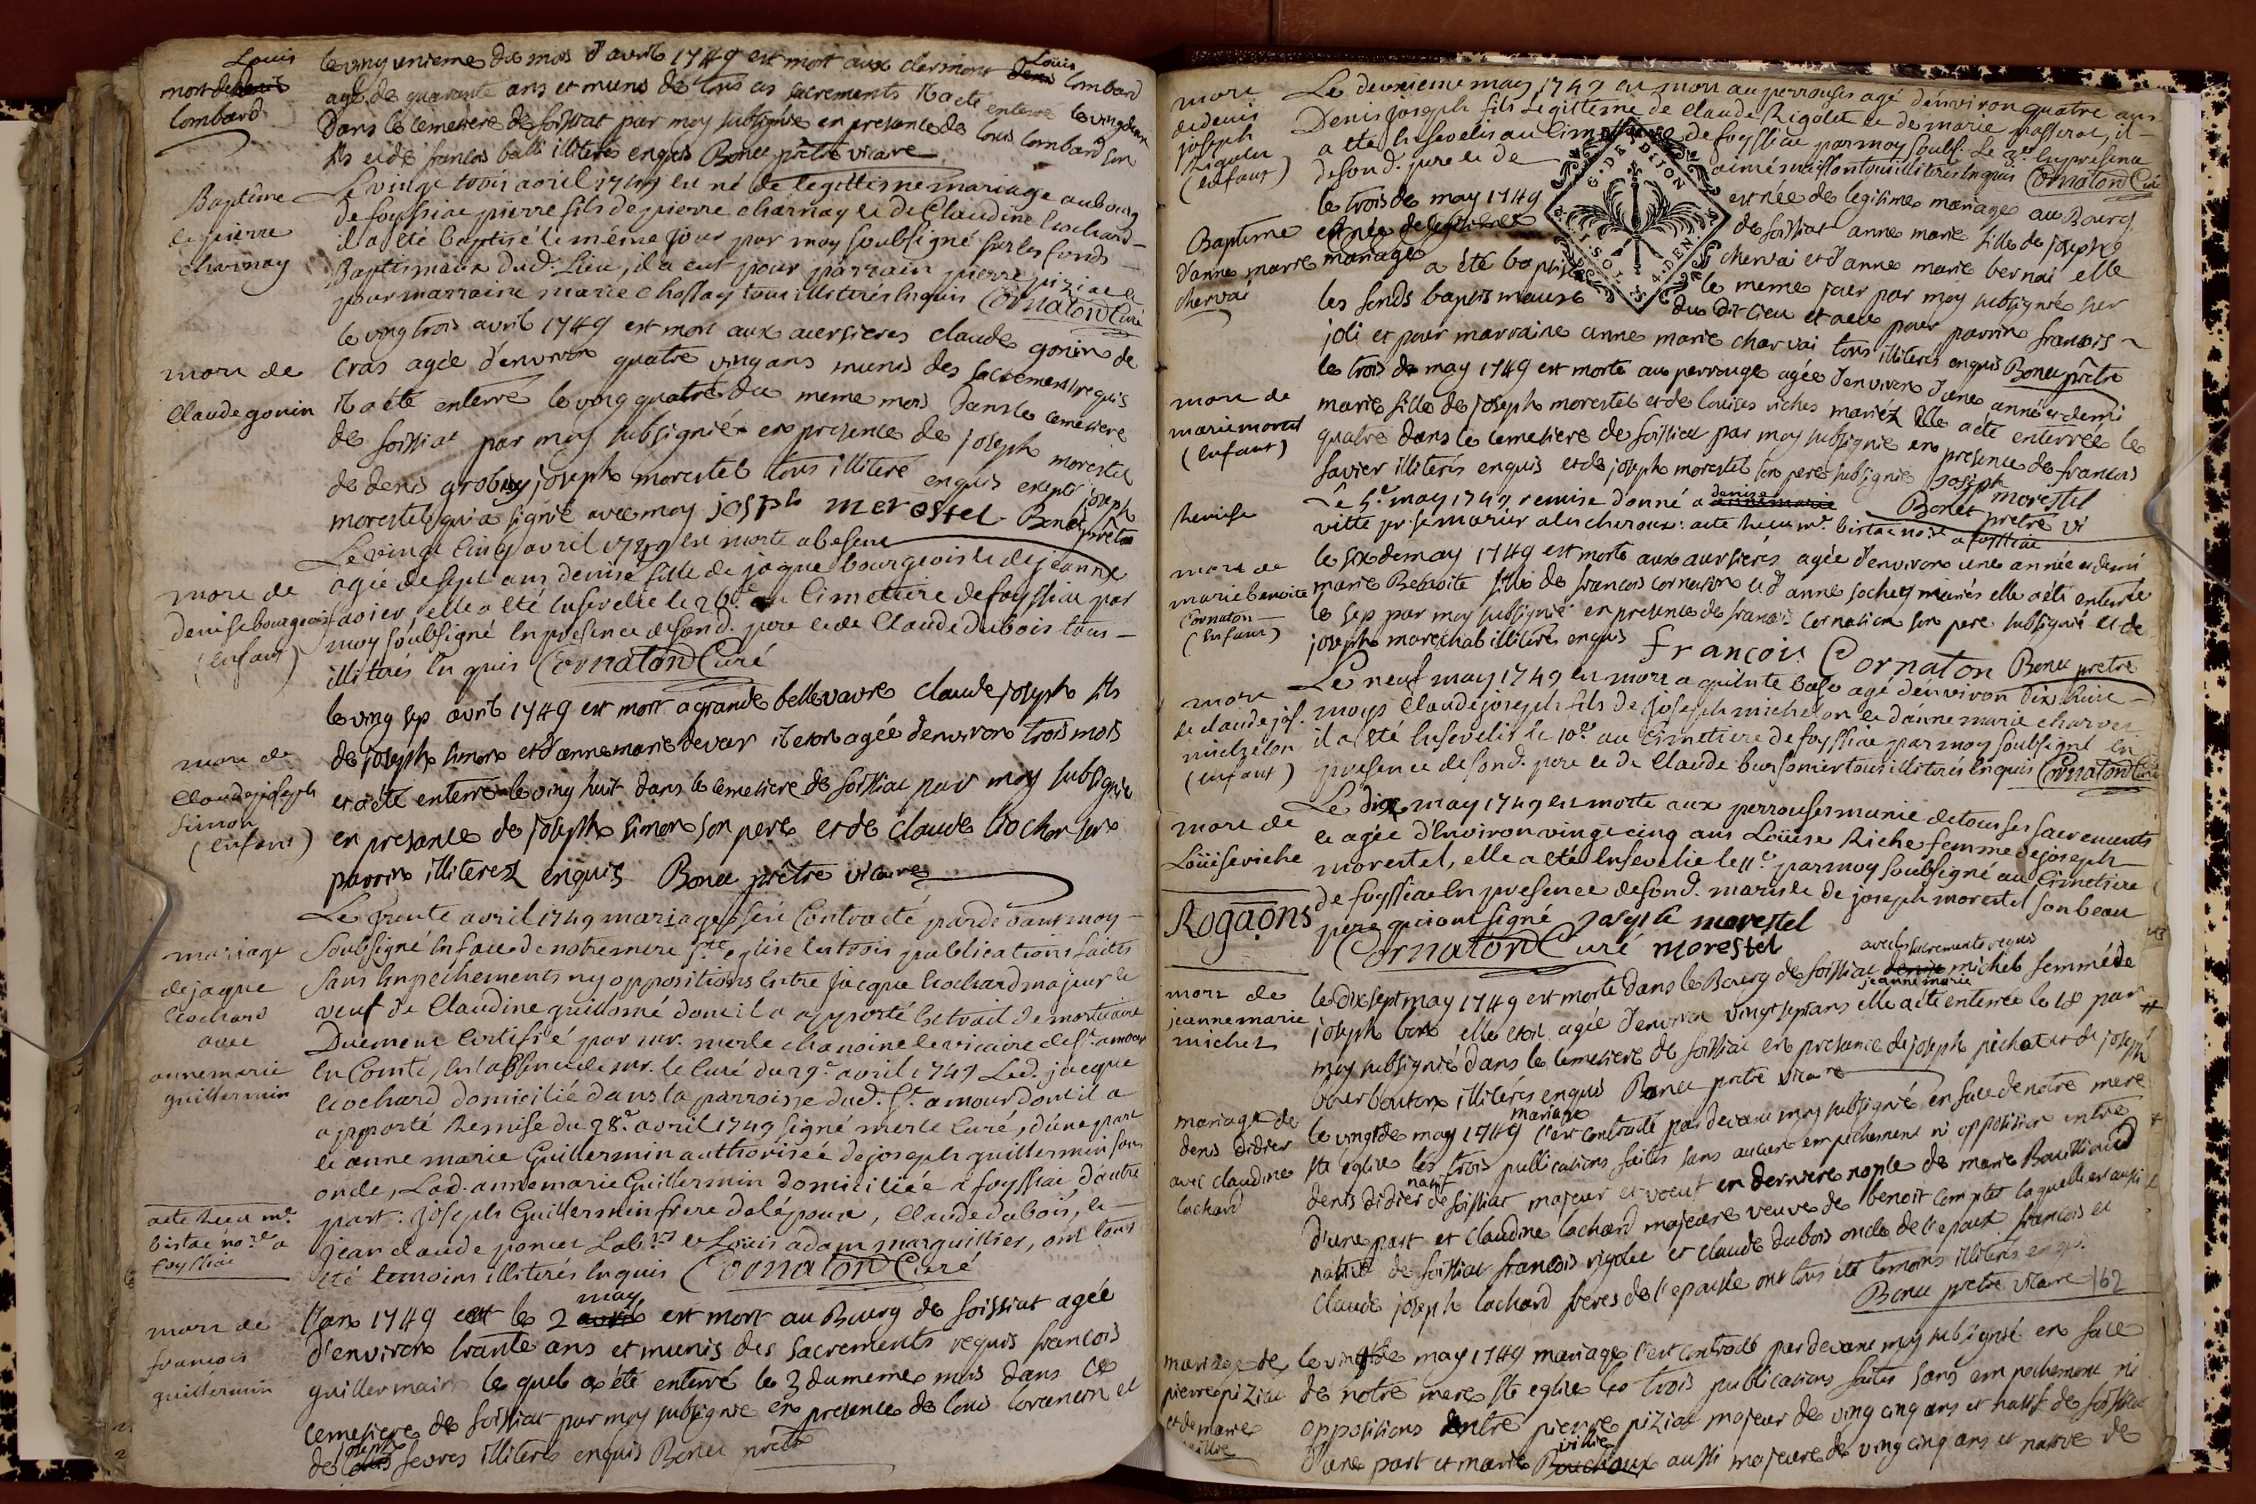 Louis
mort de denis
lombard
le vingt unieme du mois d'avril 1749 est mort aux clermont denis Louis lombard
agé de quarante ans et munis de tous ces sacrements Il a eté enterré le vingt deux
Dans le cemetiere de foissiat par moy subsigné en presance de louis lombard son
fils et de francois balli illiterés enquis Bonet prêtre vicaire
Baptême
de pierre
charnay
Le vingt trois avril 1749 est né de legittisme mariage au bourg
de foyssiac pierre fils de pierre charnay et de Claudine Cochard
il a eté baptisé le même jour par moy soubsigné sur les fonds
Baptismaux dud. Lieu, il a eut pour parrain pierre piziat et
pour marraine marie chossay tous illiterés Enquis Cornaton Curé
mort de
Claude gonin
le vingt trois avril 1749 est mort aux aversieres claude gonin de
Cras agée d'environ quatre vingt ans munis des sacrements requis
Il a eté enterré le vingt quatre du meme mois Dans le cemetiere
de foissiat par moy subsigné en presence de joseph morestel
de denis grobuy joseph morestel tous illiteré enquis exepté joseph
morestel qui a signé avec moy joseph merestel Bonet prêtre
mort de
denise bourgeois
(enfant)
Le vingt Cinq avril 1749 est morte a besene
agée de sept ans denise fille de jaque bourgeois et de jeanne
favier, elle a eté Ensevelie le 26e au Cimettiere de foyssiac par
moy soubsigné En presence de son d. pere et de Claude Dubois tous
illiterés Enquis Cornaton Curé
mort de
Claude joseph
simon
(enfant)
le vingt sep avril 1749 est mort a grande bellevavre claude joseph fils
de joseph simon et d'anne marie devar il etoit agée d'environ trois mois
et a eté enterré le vingt huit dans le cemetiere de foissiat par moy subsigné
en presance de joseph simon son pere et de claude Cochon son
parrin illiterez enquis Bonet prêtre vicaire
mariage
de jaque
Cochard
avec
anne marie
guillermin
Le trente avril 1749 mariage s'est Contracté par devant moy
Soubsigné En face de notre mere Ste eglise les trois publications faittes
sans Empêchements ny oppositions Entre Jacque Cochard majeur et
veuf de Claudine guillomé dont il a apporté Extrait de mortuaire
Duement Certifié par mr. merle chanoine et vicaire de St. amour
En Comté, En l'absence de mr. le Curé du 29e avril 1749 Led. jacque
Cochard domicilié dans la parroisse dud. St. amour dont il a
apporté Remise du 28e avril 1749 signé merle Curé, d'une part
et anne marie Guillermin authorisée de joseph guillermin son
oncle, Lad. anne marie Guillermin domiciliée a foyssiac d'autre
part: joseph Guillermin frere de l'épouse, Claude dubois, et
jean claude poncet Lab. et Louis adam marguillier, ont tous
eté temoins illiterés Enquis Cornaton Curé
acte Receu mr.
bistac nore a
foyssiac
mort de
francois
guillermin
l'an 1749 est le 2 avril may est mort au Bourg de foissiat agée
d'environ trante ans et munis des sacrements requis francois
guillermain le quel a été enterré le 3 du meme mois dans Ce
cemetiere de foissiat par moy subsigné en presence de louis lorancin et
de louis joseph fevres illiterés enquis Bonet prêtre
mort
de denis
joseph
Rigolet
(enfant)
Le deuxieme may 1749 est mort au perrouses agé d'environ quatre ans
Denis joseph fils Legittisme de Claude Rigolet et de marie passerat, il
a eté Ensevelis au Cimettiere de foyssiac par moy soubs. Le 3e En presence
de son d. pere et de aimé mussillon tous illiterés Enquis Cornaton Curé
G. DE DIJON
I. SOL. 4. DEN.
Baptime
d'anne marie
chervai
le trois de may 1749 est née de legitime mariage au Bourg
de foissiat anne marie fille de joseph
chervai et d'anne marie bernai elle
a été baptisé le meme jour par moy subsigné sur
les fonds baptismaux du dit lieu et a eu pour parrin francois
joli et pour marraine anne marie charvai tous illiterés enquis Bonet prêtre
mort de
marie morestel
(enfant)
le trois de may 1749 est morte au perrouge agée d'environ d'une année et demi
marie fille de joseph morestel et de louises riches mariéz Elle a eté enterrée le
quatre dans le cemetiere de foissiat par moy subsigné en presence de francois
favier illiterés enquis et de joseph morestel son pere subsigné joseph morestel
Bonet pretre vi
Remise
Le 5e may 1749 remise donné a denise
vitte pr. se marier a
acte Receu mr. bistac nore a foyssiac
mort de
marie benoite
Cornaton
(enfant)
le six de may 1749 est morte aux aversieres agée d'environ une année et demi
marie Benoite fille de francois cornaton et d'anne sochey mariés elle a eté enterrée
le sep par moy subsigné en presence de francois Cornaton son pere subsigné et de
joseph marechal illiteré enquis francois Cornaton Bonet pretre
mort
de claude jos.
michelon
(enfant)
Le neuf may 1749 est mort a quinte basse agé d'environ dix huit
moys Claude joseph fils de joseph michelon et d'anne marie charves
il a eté Ensevelis le 10e au Cimettiere de foyssiac par moy soubsigné En
presence de son d. pere et de Claude bursonier tous illiterés Enquis Cornaton Curé
mort de
Loüise riche
Le dix may 1749 est morte aux perrouses munie de tous ses sacrements
et agée d'Environ vingt cinq ans Loüise Riche femme de joseph
morestel, elle a eté Ensevelie le 11e par moy soubsigné au Cimetiere
de foyssiac En presence de son d. mary et de joseph morestel son beau
pere qui ont signé joseph morestel
Cornaton Curé morestel
Rogaons
mort de
jeanne marie
michel
avec les sacrements requis
le dix sept may 1749 est morte dans le Bourg de foissiat denise jeanne marie michel femme de
joseph bon elle etoit agée d'environ vingt sept ans elle a eté enterrée le 18 par
moy subsigné dans le cemetiere de foissiat en presance de joseph pechot et de joseph
bourbouton illiterés enquis Bonet prêtre vicaire
mariage de
denis didier
avec claudine
lochard
le vingt de may 1749 mariage s'est contracté par devant moy subsigné en face de notre mere
ste eglise les trois publications faites sans aucun empechement ni opposition entre
denis didier natif de foissiat majeur et voeuf en derniere nople de marie Bouillioud
d'une part et claudine lochard majeure veuve de benoit complet laquelle est aussi
native de foissiat francois rigolet et claude dubois oncle de l'epoux francois et
claude joseph lochard freres de l'epouse ont tous eté temoins illiterés enqu.
Bonet pretre vicaire 162
mariage de
pierre piziat
et de marie
veillie
le vingt de may 1749 mariage s'est contracté par devant moy subsigné en face
de notre mere ste eglise les trois publications faites sans empechement ni
oppositions entre pierre piziat majeur de ving cinq ans et natif de foissiat
d'une part et marie Bouchoux villie aussi majeure de ving cinq ans et native de